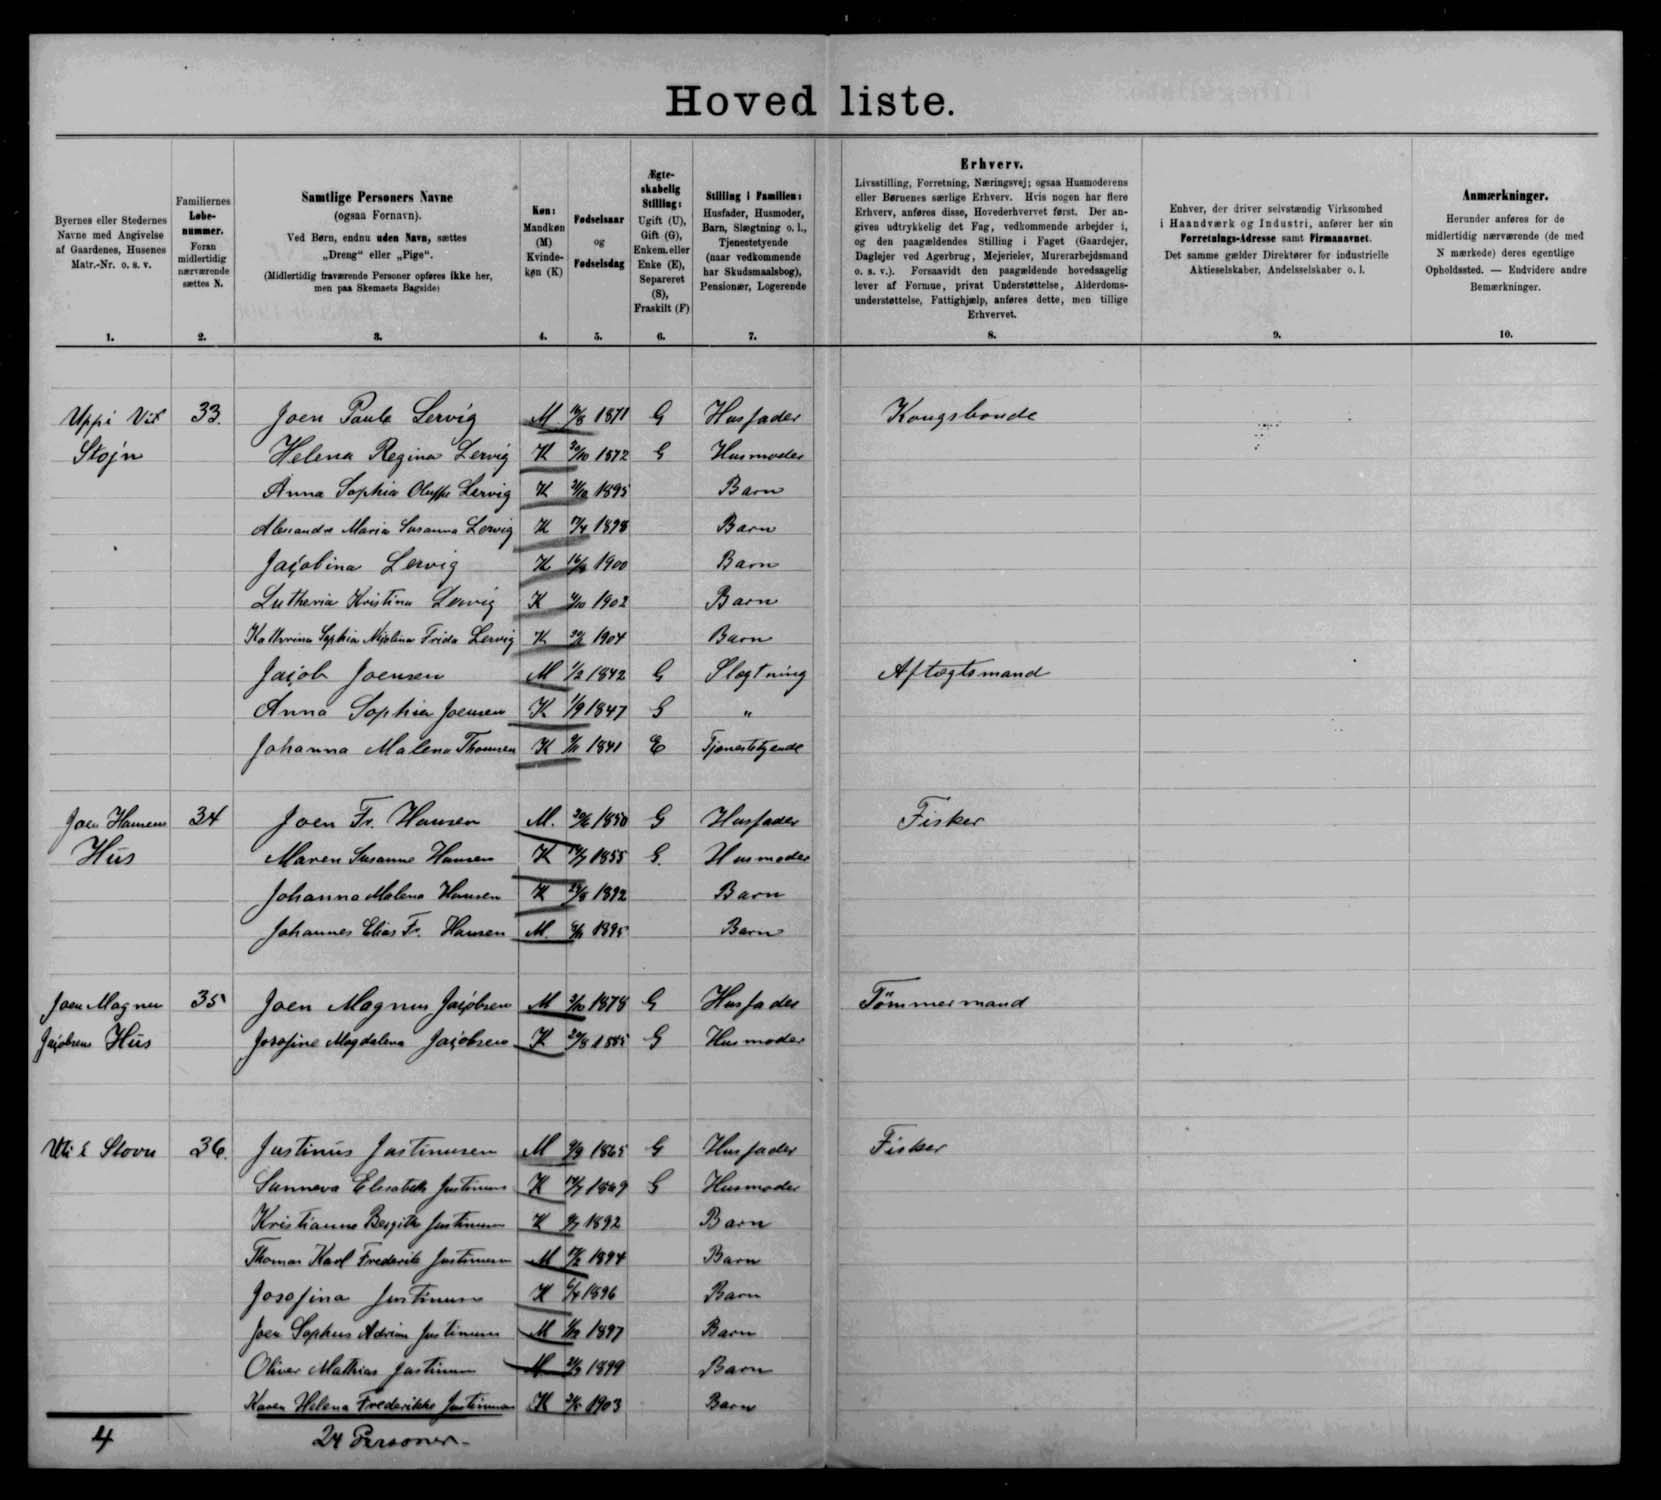 Hovedliste.
Byernes eller Stedernes
Navne med Angivelse
af Gaardenes, Husenes
Matr.-Nr. o. s. v.
1.
Familiernes
Løbe-
nummer.
Foran
midlertidig
nærværende
sættes N.
2.
Samtlige Personers Navne
(ogsaa Fornavn).
Ved Børn, endnu uden Navn, sættes
„Dreng“ eller „Pige“.
(Midlertidig fraværende Personer opføres ikke her,
men paa Skemaets Bagside)
3.
Køn:
Mandkøn
(M)
Kvinde-
køn (K)
4.
Fødselsaar
og
Fødselsdag
5.
Ægte-
skabelig
Stilling:
Ugift (U),
Gift (G),
Enkem. eller
Enke (E),
Separeret
(S),
Fraskilt (F)
6.
Stilling i Familien:
Husfader, Husmoder,
Barn, Slægtning o. l.,
Tjenestetyende
(naar vedkommende
har Skudsmaalsbog),
Pensionær, Logerende
7.
Erhverv.
Livsstilling, Forretning, Næringsvej; ogsaa Husmoderens
eller Børnenes særlige Erhverv. Hvis nogen har flere
Erhverv, anføres disse, Hovederhvervet først. Der an-
gives udtrykkelig det Fag, vedkommende arbejder i,
og den paagældendes Stilling i Faget (Gaardejer,
Daglejer ved Agerbrug, Mejerielev, Murerarbejdsmand
o. s. v.). Forsaavidt den paagældende hovedsagelig
lever af Formue, privat Understøttelse, Alderdoms-
understøttelse, Fattighjælp, anføres dette, men tillige
Erhvervet.
8.
Enhver, der driver selvstændig Virksomhed
i Haandværk og Industri, anfører her sin
Forretnings-Adresse samt Firmanavnet.
Det samme gælder Direktører for industrielle
Aktieselskaber, Andelsselskaber o. l.
9.
Anmærkninger.
Herunder anføres for de
midlertidig nærværende (de med
N mærkede) deres egentlige
Opholdssted. — Endvidere andre
Bemærkninger.
10.
Uppi Við 33. Joen Paule Lervig M 1871 G Husfader Kongsbonde
Stojn Helena Regina Lervig K 1872 G Husmoder
Anna Sophia Lervig K 1895 Barn
Alexandra Maria Susanna Lervig K 1898 Barn
Jacobina Lervig K 1900 Barn
Lutheria Kristina Lervig K 1902 Barn
Kathrina Sophia Frida Lervig K 1904 Barn
Jacob Joensen M 1/2 1842 G Slægtning Aftægtsmand
Anna Sophia Joensen K 1/9 1847 G "
Johanna Malena Thomsen K 1841 E Tjenestetyende
Joen Hansens 34 Joen Fr. Hansen M. 1850 G Husfader Fisker
Hús Maren Susanne Hansen K 1855 G. Husmoder
Johanna Malena Hansen K 1892 Barn
Johannes Elias Fr. Hansen M. 1895 Barn
Joen Magnus 35 Joen Magnus Jacobsen M 1878 G Husfader Tömmermand
Jacobsens Hús Josefine Magdalena Jacobsen K G Husmoder
36. Justinus Justinussen M 1865 G Husfader Fisker
Sunneva Elisabeth K 1869 G Husmoder
Kristianne K 1892 Barn
Thomas Karl Frederik M 1894 Barn
Josefina K 1896 Barn
Joen Sophus Adrian M 1897 Barn
Oliver Mathias M 1899 Barn
Karen Helena Frederikke K 1903 Barn
4 24 Personer